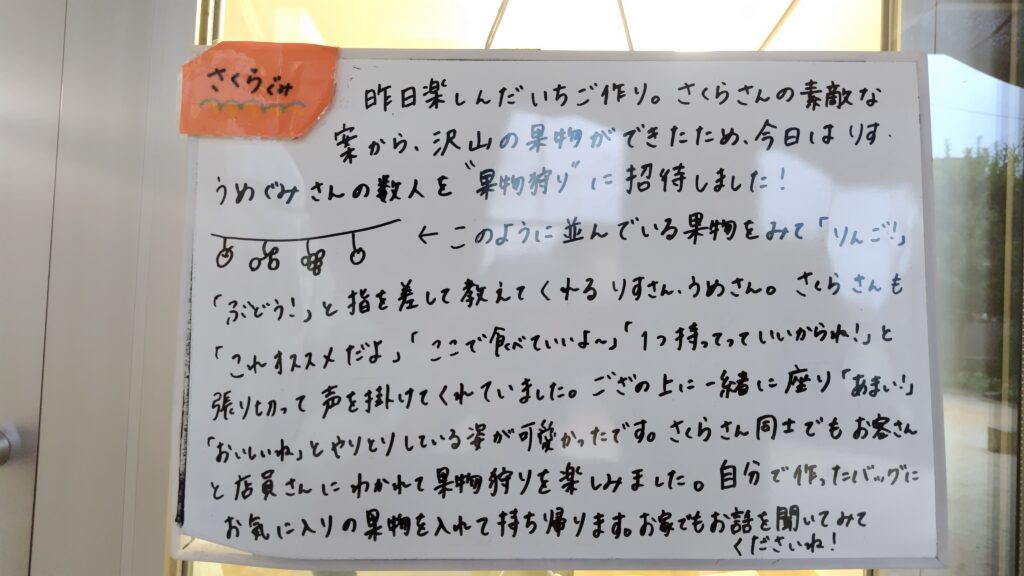 さくらぐみ
昨日楽しんだいちご作り。さくらさんの素敵な
案から、沢山の果物ができたため、今日はりす・
うめぐみさんの数人を"果物狩り"に招待しました!
← このように並んでいる果物をみて「りんご!」
「ぶどう!」と指を差して教えてくれる りすさん、うめさん。さくらさんも
「これオススメだよ」「ここで食べていいよ〜」「1つ持ってっていいからね!」と
張り切って声を掛けてくれていました。ござの上に一緒に座り「あまい!」
「おいしいね」とやりとりしている姿が可愛かったです。さくらさん同士でもお客さん
と店員さんにわかれて果物狩りを楽しみました。自分で作ったバッグに
お気に入りの果物を入れて持ち帰ります。お家でもお話を聞いてみて
くださいね!